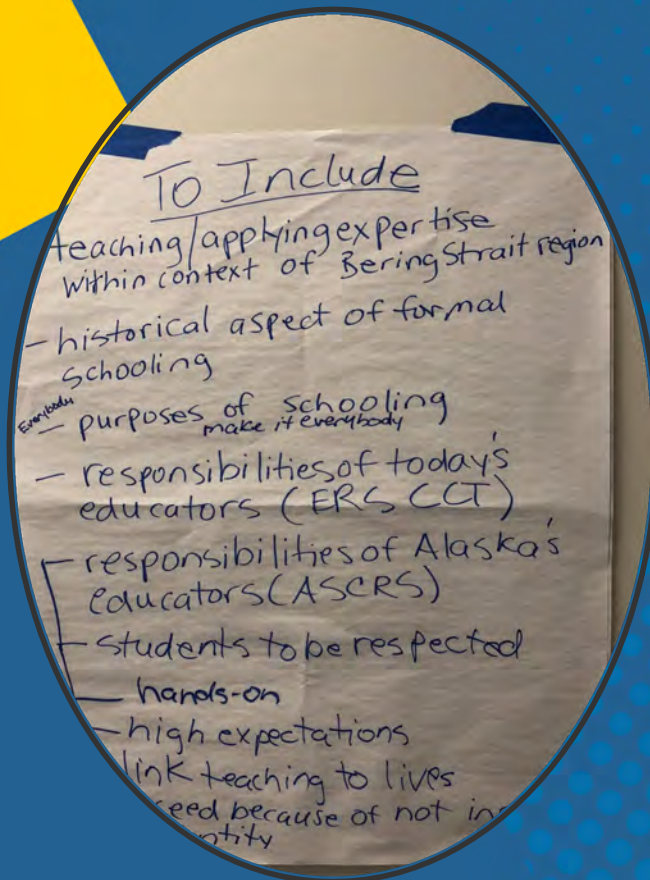 To Include
teaching/applying expertise
within context of Bering Strait region
- historical aspect of formal
schooling
Everybody
- purposes of schooling
make it everybody
- responsibilities of today's
educators (ERS CCT)
- responsibilities of Alaska's
educators (ASCRS)
- students to be respected
- hands-on
- high expectations
link teaching to lives
because of not